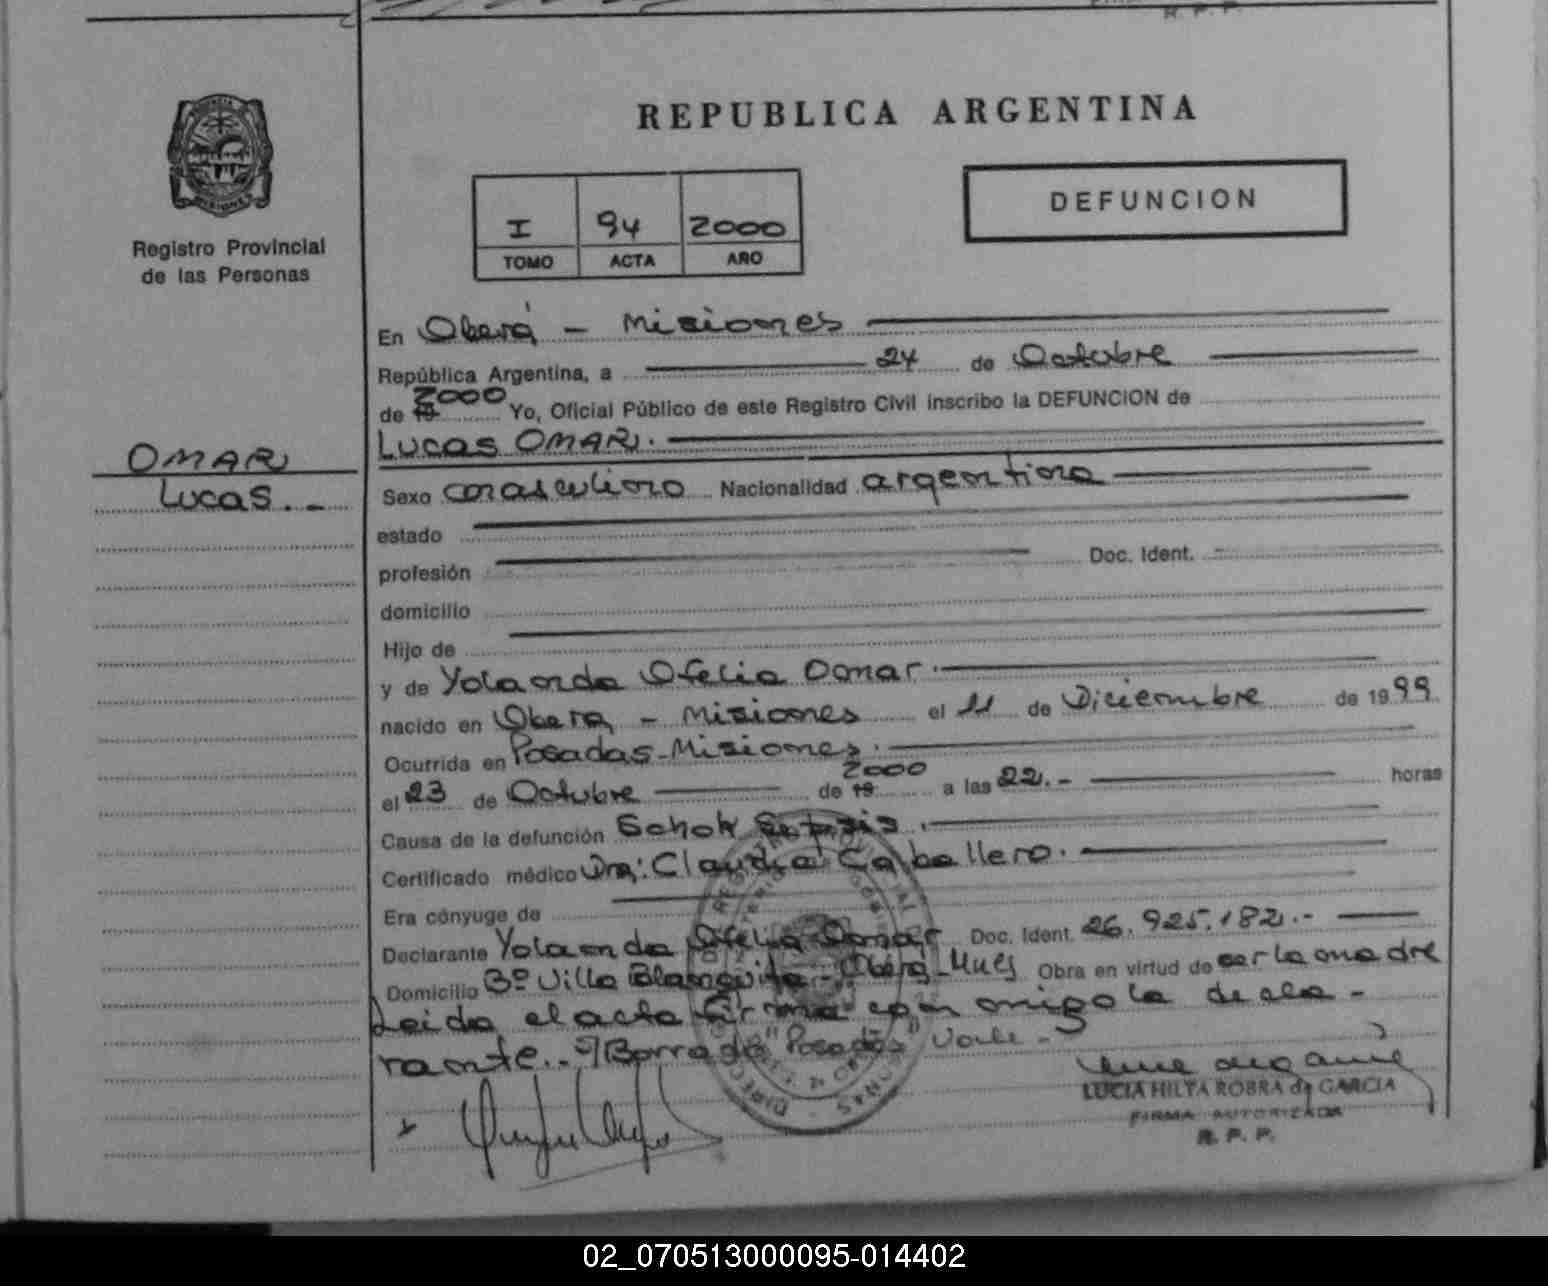 R. P. P.
REPUBLICA ARGENTINA
I 94 2000
TOMO ACTA AÑO
DEFUNCION
MISIONES
Registro Provincial
de las Personas
OMAR
Lucas. -
En Oberá - Misiones
República Argentina, a 24 de Octubre
2000
de 19 Yo, Oficial Público de este Registro Civil inscribo la DEFUNCION de
Lucas OMAR.
Sexo masculino Nacionalidad argentina
estado
profesión Doc. Ident.
domicilio
Hijo de
y de Yolanda Ofelia Omar.
nacido en Obera - Misiones el 11 de Diciembre de 1999
Ocurrida en Posadas-Misiones.
2000
el 23 de Octubre de 19 a las 22.- horas
Causa de la defunción Schok Septsis.
Certificado médico Dra: Claudia Caballero.
Era cónyuge de
Declarante Yolanda Ofelia Omar Doc. Ident. 26.925.182.-
Domicilio Bº Villa Blanquita - Oberá - Mnes Obra en virtud de ser la madre
Leida el acta firma conmigo la decla-
rante.. S/Borrado "Posadas" Vale -
LUCIA HILTA ROBRA de GARCIA
FIRMA AUTORIZADA
R. P. P.
02_070513000095-014402